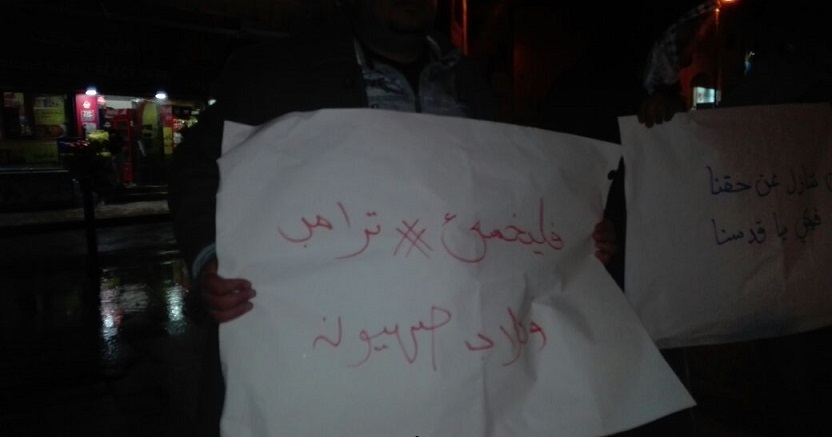 فليخسئ # ترامب
ولاد صهيونه
تنازل عن حقنا
فيكي يا قدسنا